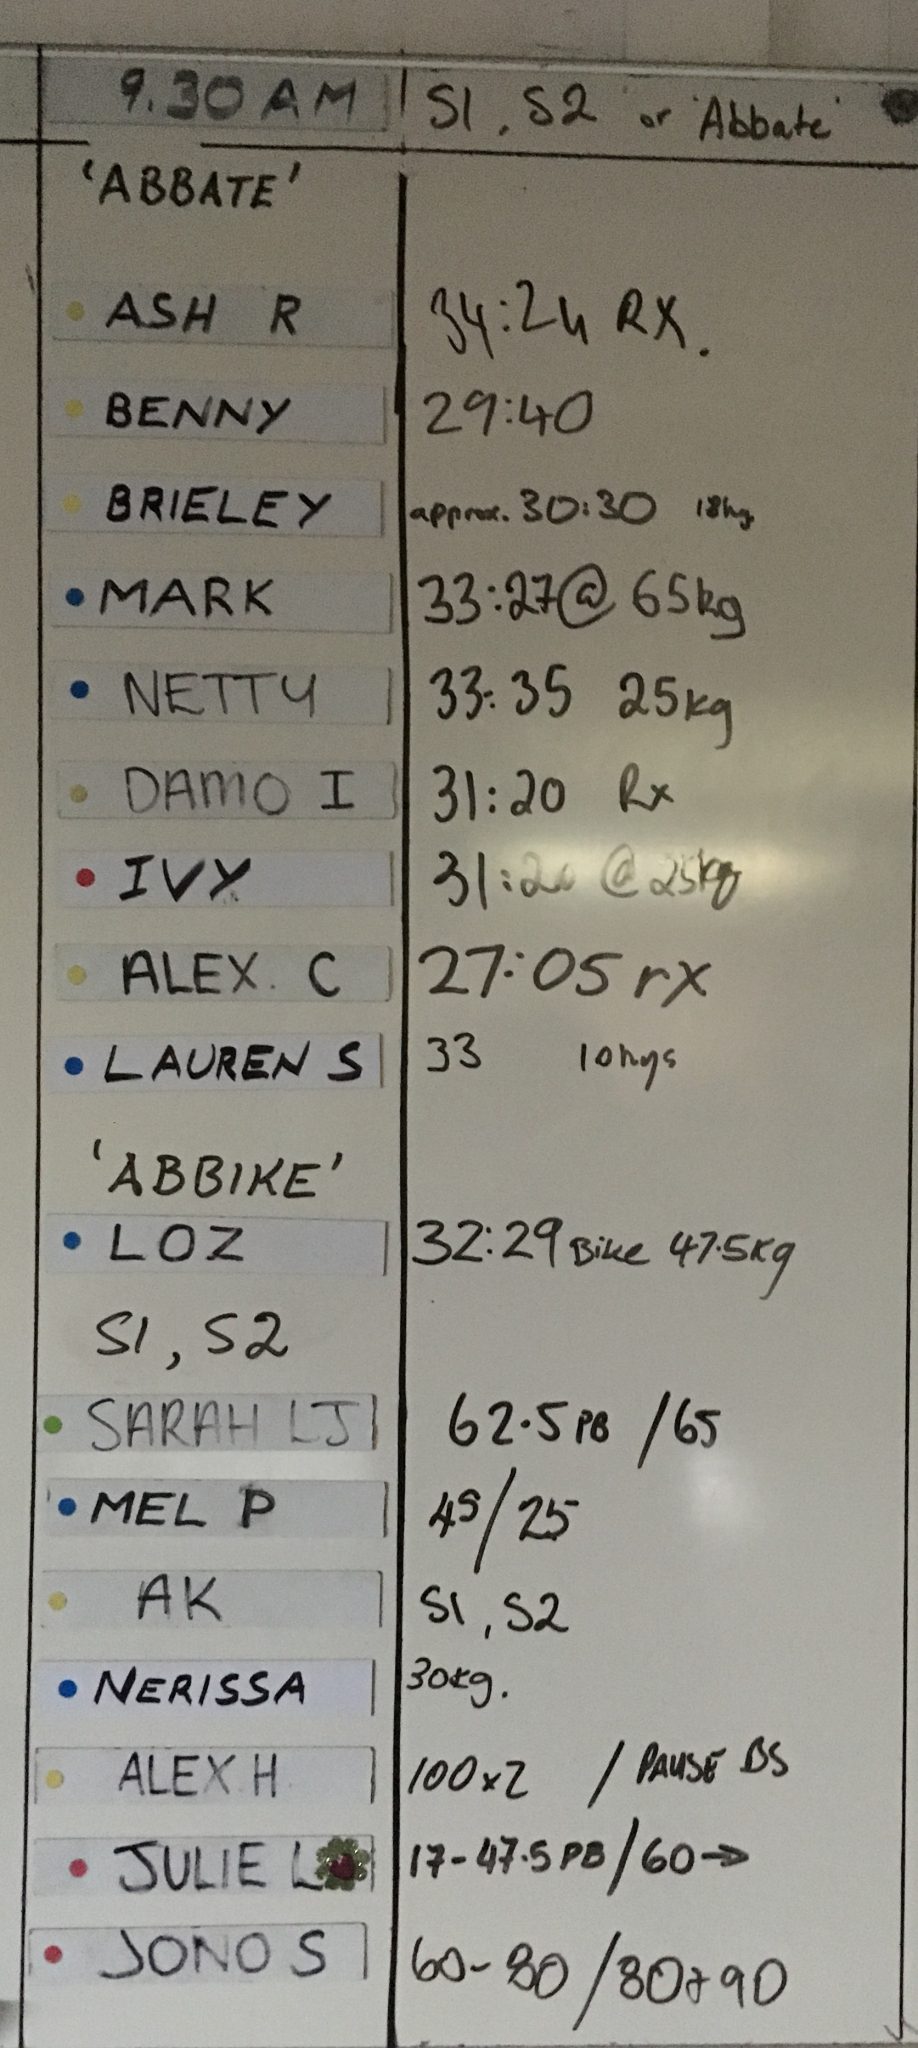 9.30 AM S1, S2 or 'Abbate'
'ABBATE'
ASH R 34:24 RX.
BENNY 29:40
BRIELEY approx. 30:30 18kg
MARK 33:27@ 65kg
NETTY 33:35 25kg
DAMO I 31:20 Rx
IVY 31:20 @ 25kg
ALEX. C 27:05 rx
LAUREN S 33 10kgs
'ABBIKE'
LOZ 32:29 Bike 47.5kg
S1, S2
SARAH LJ 62.5 PB /65
MEL P 45/25
AK S1, S2
NERISSA 30kg.
ALEX H 100x2 / PAUSE BS
JULIE L 17-47.5 PB/60→
JONO S 60-80/80+90